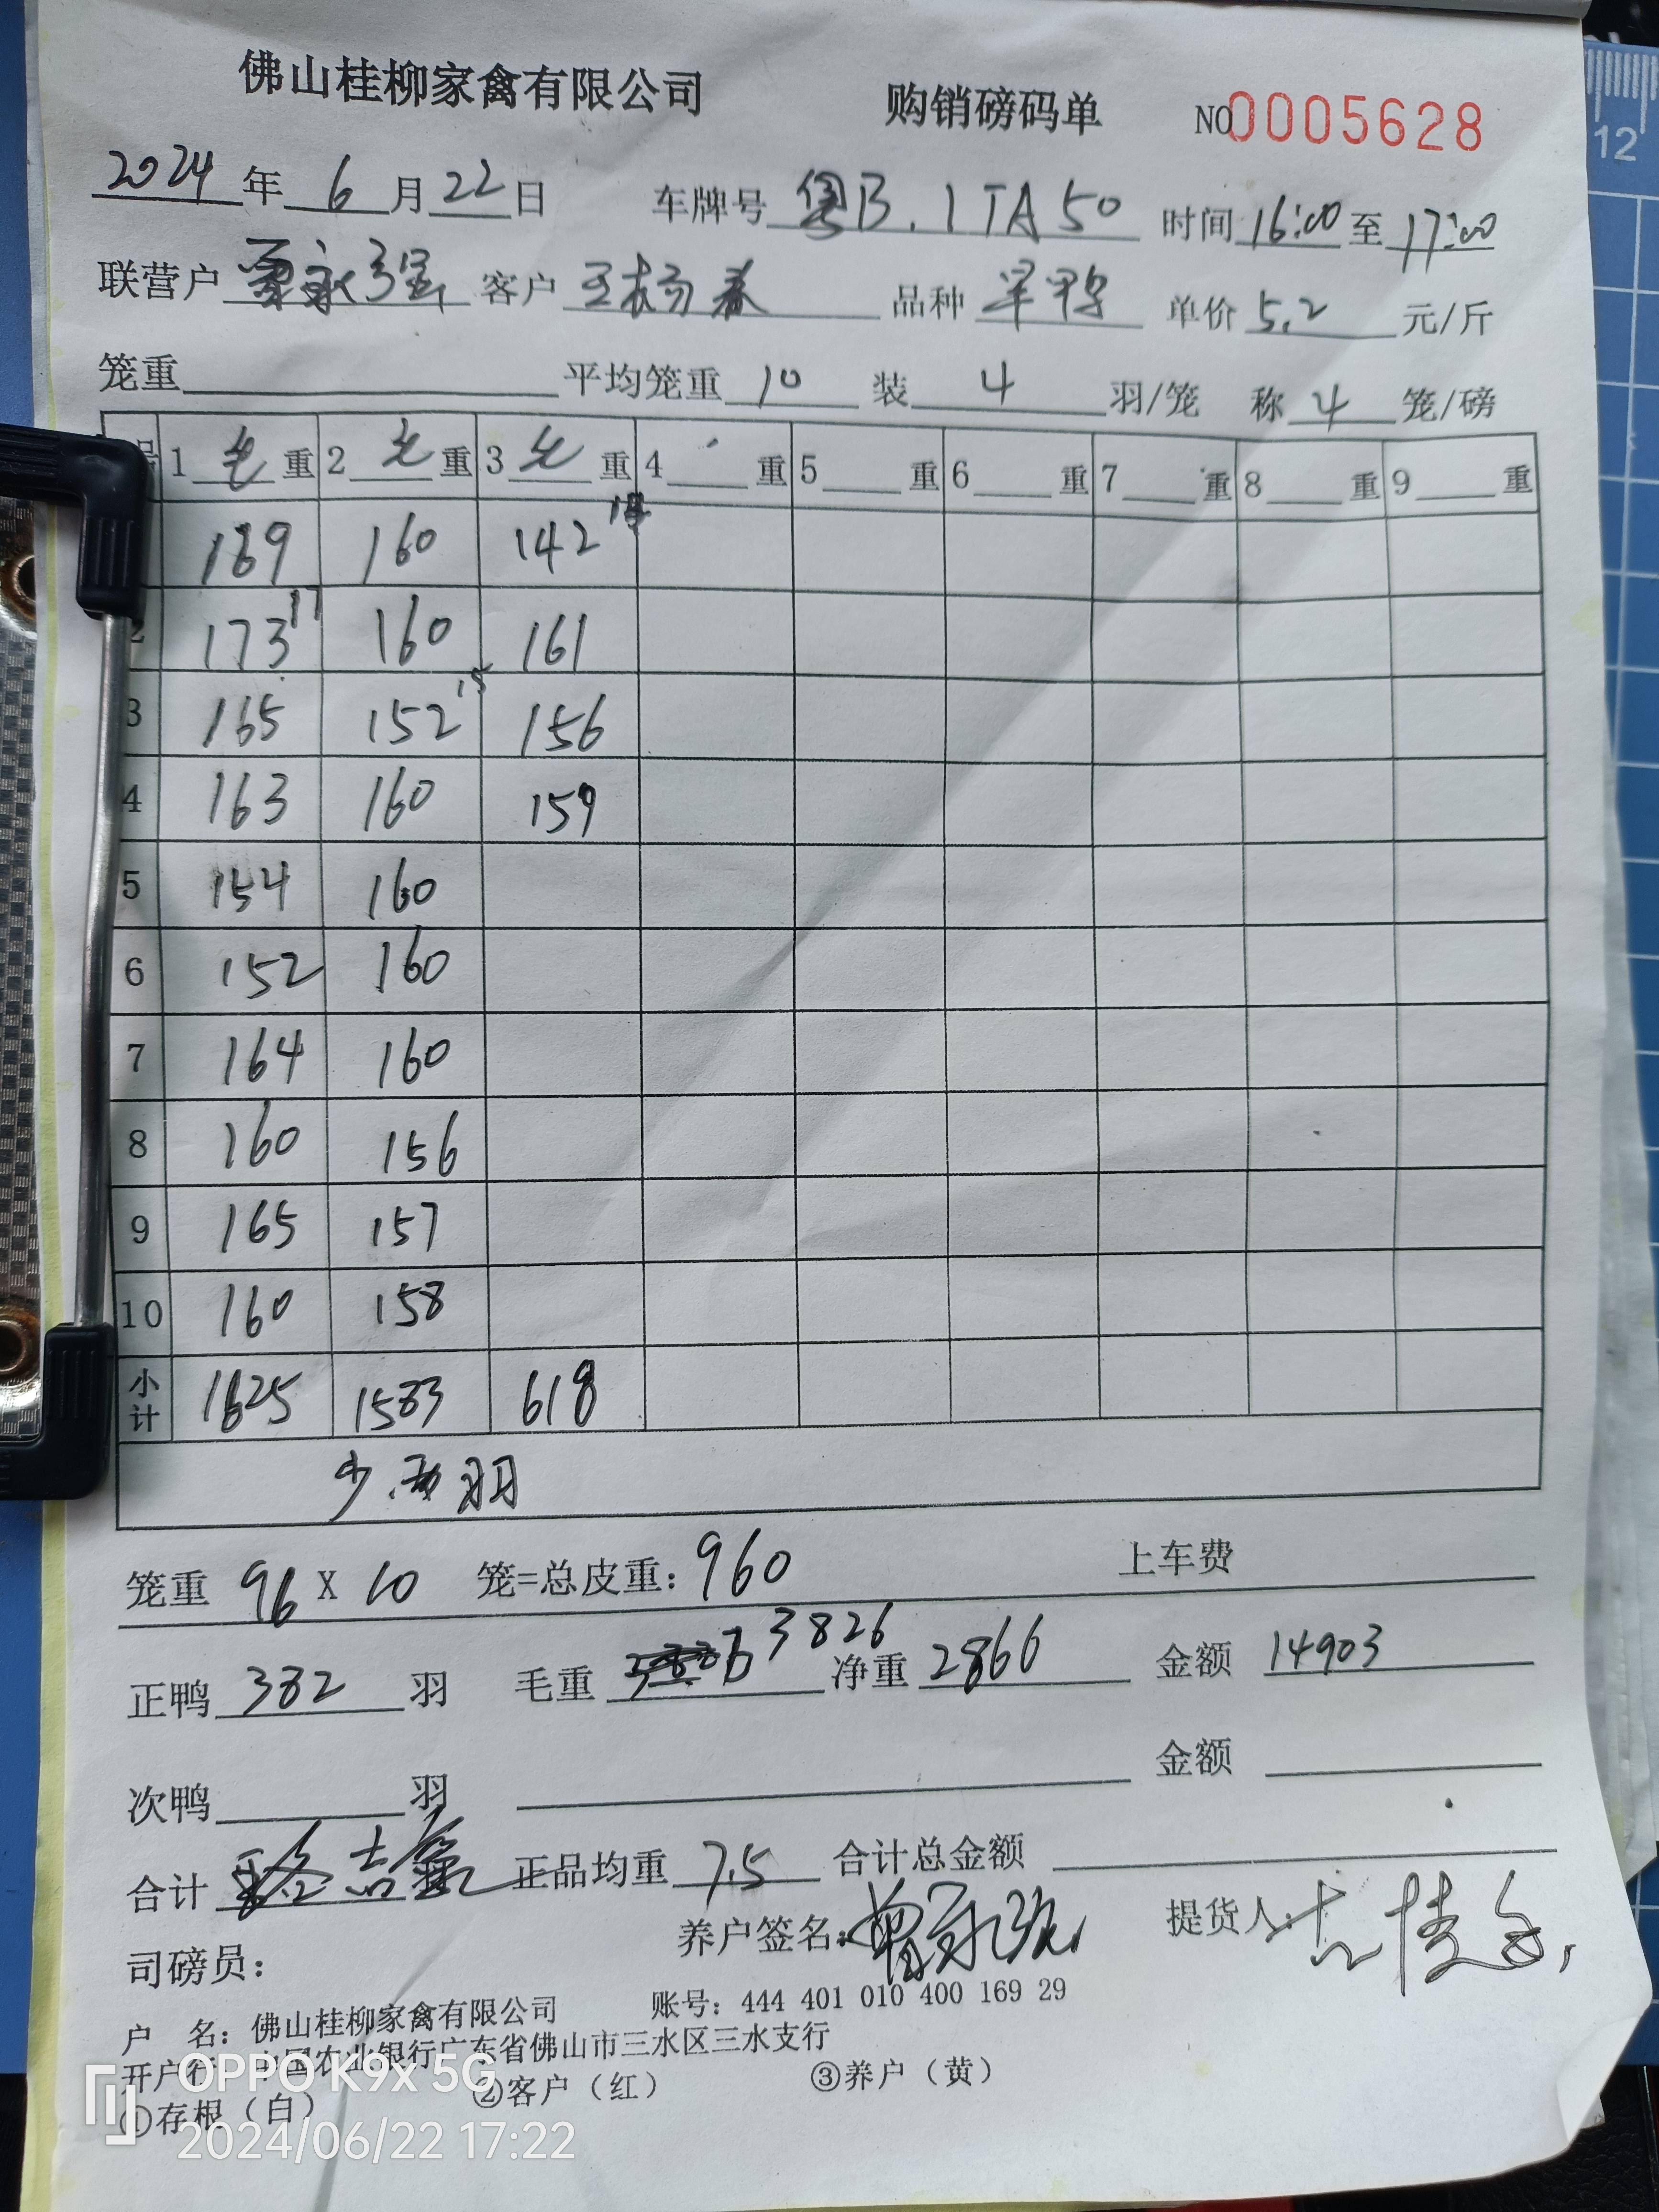 佛山桂柳家禽有限公司 购销磅码单 NO 0005628
2024 年 6 月 22 日 车牌号 粤B.1TA50 时间 16:00 至 17:00
联营户 覃永强 客户 王杨春 品种 单价 5.2 元/斤
笼重 平均笼重 10 装 4 羽/笼 称 4 笼/磅
号 1 毛 重 2 毛 重 3 毛 重 4 重 5 重 6 重 7 重 8 重 9 重
169 160 142
2 173 17 160 161
3 165 152 15 156
4 163 160 159
5 154 160
6 152 160
7 164 160
8 160 156
9 165 157
10 160 158
小计 1625 1583 618
少两羽
笼重 96 X 10 笼=总皮重: 960 上车费
正鸭 382 羽 毛重 3826 净重 2866 金额 14903
次鸭 羽 金额
合计 正品均重 7.5 合计总金额
司磅员: 养户签名: 提货人:
户 名: 佛山桂柳家禽有限公司 账号: 444 401 010 400 169 29
开户行: 中国农业银行广东省佛山市三水区三水支行
①存根(白) ②客户(红) ③养户(黄)
OPPO K9x 5G
2024/06/22 17:22